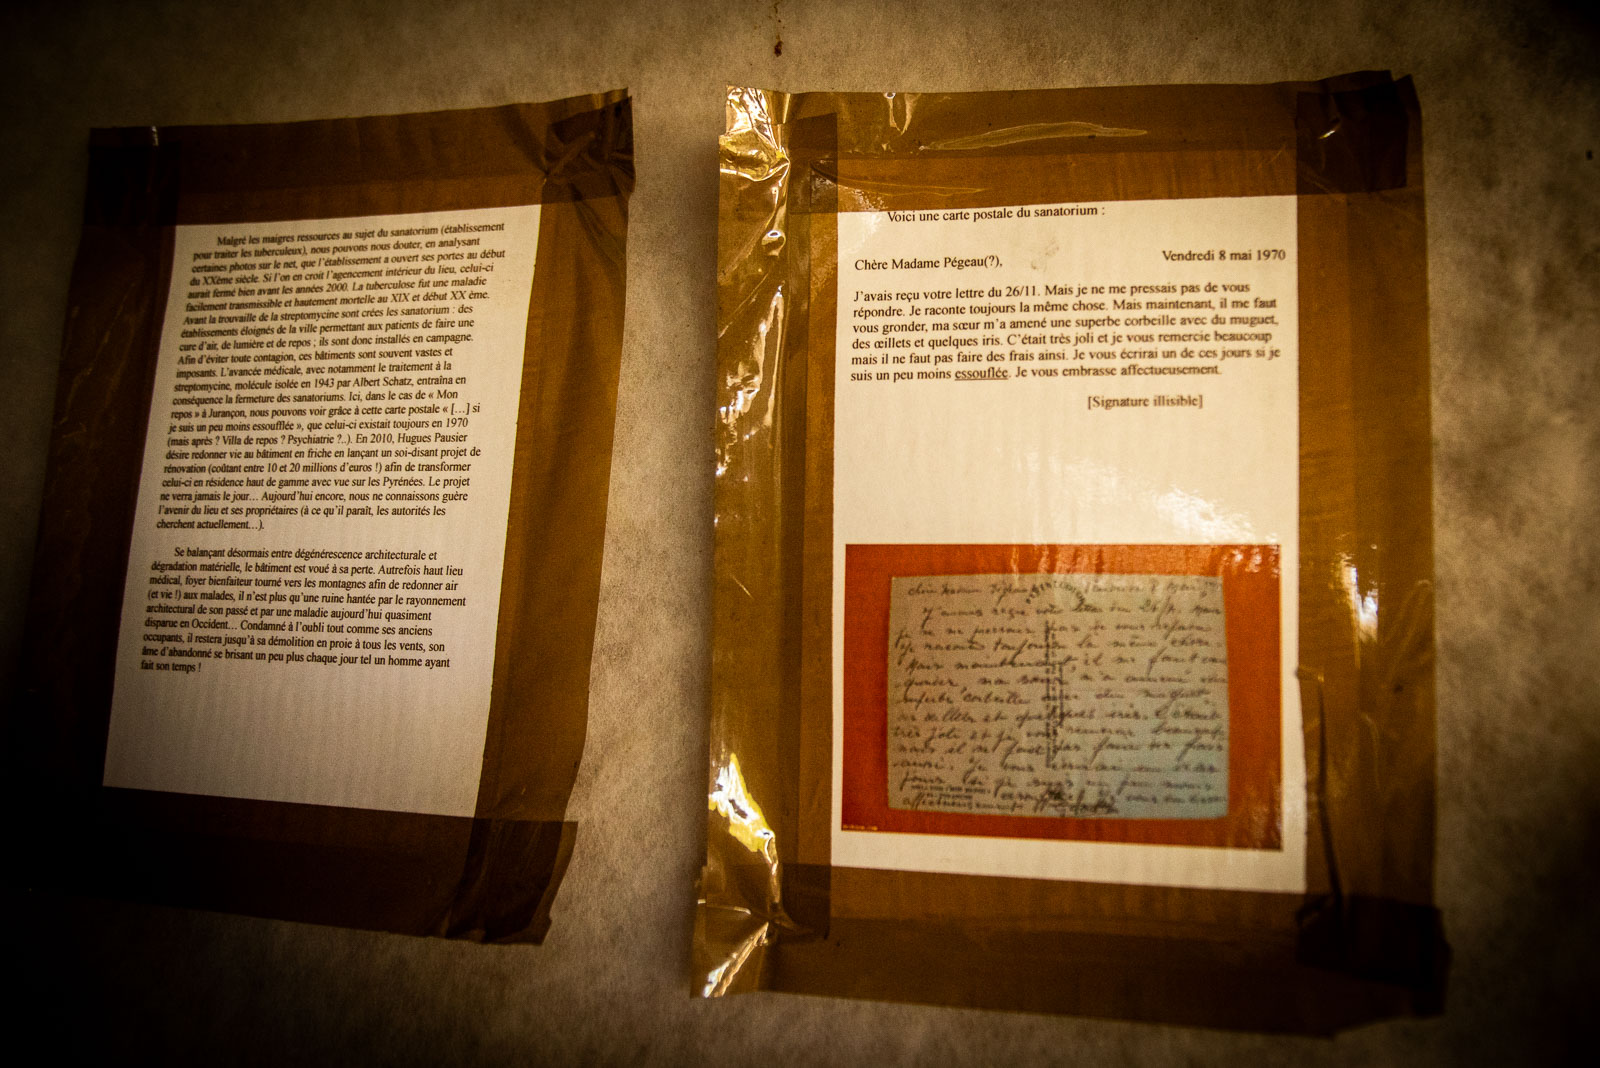 Malgré les maigres ressources au sujet du sanatorium (établissement
pour traiter les tuberculeux), nous pouvons nous douter, en analysant
certaines photos sur le net, que l'établissement a ouvert ses portes au début
du XXème siècle. Si l'on en croit l'agencement intérieur du lieu, celui-ci
aurait fermé bien avant les années 2000. La tuberculose fut une maladie
facilement transmissible et hautement mortelle au XIX et début XX ème.
Avant la trouvaille de la streptomycine sont crées les sanatorium : des
établissements éloignés de la ville permettant aux patients de faire une
cure d'air, de lumière et de repos ; ils sont donc installés en campagne.
Afin d'éviter toute contagion, ces bâtiments sont souvent vastes et
imposants. L'avancée médicale, avec notamment le traitement à la
streptomycine, molécule isolée en 1943 par Albert Schatz, entraîna en
conséquence la fermeture des sanatoriums. Ici, dans le cas de « Mon
repos » à Jurançon, nous pouvons voir grâce à cette carte postale « […] si
je suis un peu moins essoufflée », que celui-ci existait toujours en 1970
(mais après ? Villa de repos ? Psychiatrie ?..). En 2010, Hugues Pausier
désire redonner vie au bâtiment en friche en lançant un soi-disant projet de
rénovation (coûtant entre 10 et 20 millions d'euros !) afin de transformer
celui-ci en résidence haut de gamme avec vue sur les Pyrénées. Le projet
ne verra jamais le jour… Aujourd'hui encore, nous ne connaissons guère
l'avenir du lieu et ses propriétaires (à ce qu'il paraît, les autorités les
cherchent actuellement…).
Se balançant désormais entre dégénérescence architecturale et
dégradation matérielle, le bâtiment est voué à sa perte. Autrefois haut lieu
médical, foyer bienfaiteur tourné vers les montagnes afin de redonner air
(et vie !) aux malades, il n'est plus qu'une ruine hantée par le rayonnement
architectural de son passé et par une maladie aujourd'hui quasiment
disparue en Occident… Condamné à l'oubli tout comme ses anciens
occupants, il restera jusqu'à sa démolition en proie à tous les vents, son
âme d'abandonné se brisant un peu plus chaque jour tel un homme ayant
fait son temps !
Voici une carte postale du sanatorium :
Vendredi 8 mai 1970
Chère Madame Pégeau(?),
J'avais reçu votre lettre du 26/11. Mais je ne me pressais pas de vous
répondre. Je raconte toujours la même chose. Mais maintenant, il me faut
vous gronder, ma sœur m'a amené une superbe corbeille avec du muguet,
des œillets et quelques iris. C'était très joli et je vous remercie beaucoup
mais il ne faut pas faire des frais ainsi. Je vous écrirai un de ces jours si je
suis un peu moins essouflée. Je vous embrasse affectueusement.
[Signature illisible]
J'avais reçu votre lettre du Mais
je ne me pas de vous
je raconte toujours la même chose
Mais maintenant, il me faut vous
gronder, ma sœur m'a amené une
superbe corbeille avec du muguet
des œillets et quelques iris. C'était
très joli et je vous remercie beaucoup
mais il ne faut pas faire des frais
ainsi. Je vous un de ces
jours si je suis un peu moins